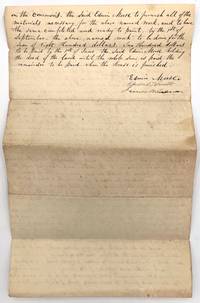 on the Comments. the Said Edwin Muse to furnish all of the
materials necessary for the above named work and to have
the same completed and ready to paint. by the 1st of
September. the above named work to be done for the
sum of Eight Hundred dollars. One Hundred dollars
to be paid by the 1st of June the Said Edwin Muse holding
the deed of the land until the whole sum is paid the
remainder to be paid when the house is finished
Edwin Muse